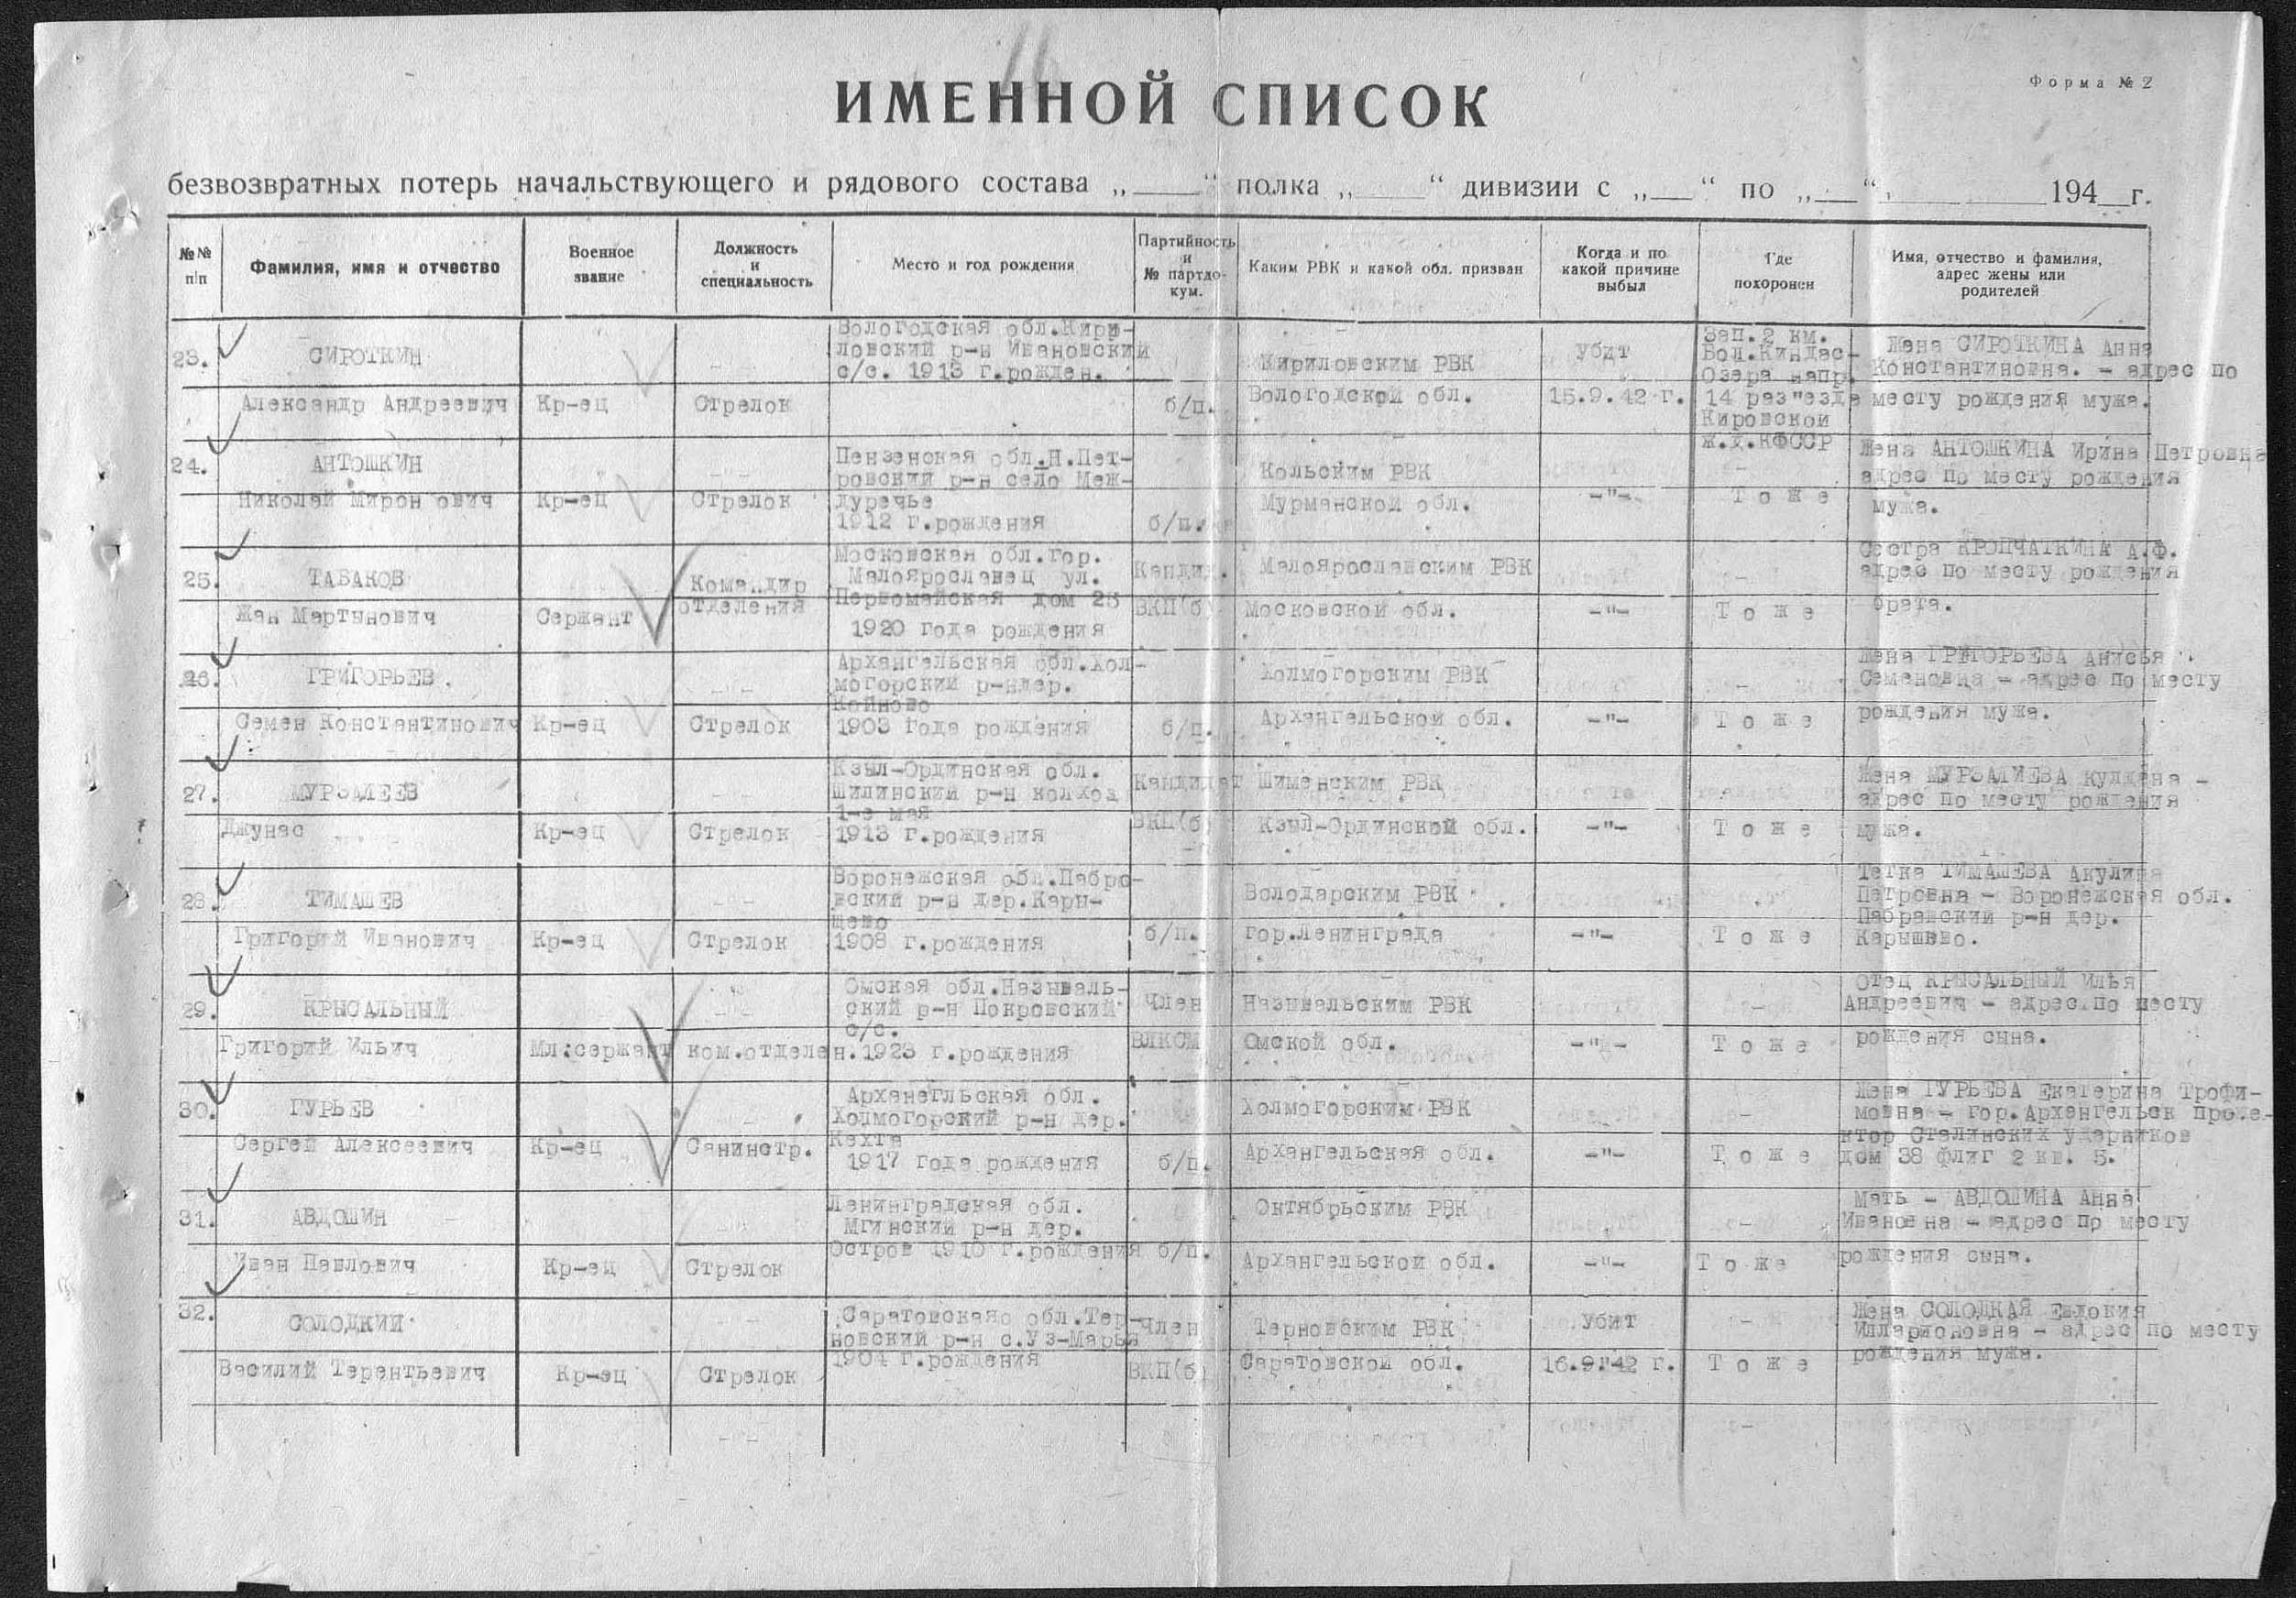 16
Форма № 2
ИМЕННОЙ СПИСОК
безвозвратных потерь начальствующего и рядового состава „____“ полка „____“ дивизии с „__“ по „__“ 194__г.
№№ п/п
Фамилия, имя и отчество
Военное звание
Должность и специальность
Место и год рождения
Партийность и № партдокум.
Каким РВК и какой обл. призван
Когда и по какой причине выбыл
Где похоронен
Имя, отчество и фамилия, адрес жены или родителей
23.
СИРОТКИН
Александр Андреевич
Кр-ец
Стрелок
Вологодская обл.Кири-
ловский р-н Ивановский
с/с. 1913 г.рожден.
б/п.
Кириловским РВК
Вологодской обл.
Убит
15.9.42 г.
Зап.2 км.
Вол.Киндас-
Озера напр.
14 раз"езда
Кировской
Ж.Д.КФССР
Жена СИРОТКИНА Анна
Константиновна. - адрес по
месту рождения мужа.
24.
АНТОШКИН
Николай Мирон ович
Кр-ец
Стрелок
Пензенская обл.Н.Пет-
ровский р-н село Меж-
дуречье
1912 г.рождения
б/п.
Кольским РВК
Мурманской обл.
-"-
Т о ж е
Жена АНТОШКИНА Ирина Петровна
адрес по месту рождения
мужа.
25.
ТАБАКОВ
Жан Мартынович
Сержант
Командир
отделения
Московская обл.гор.
Малоярославец ул.
Первомайская дом 25
1920 года рождения
Кандид.
ВКП(б)
Малоярославским РВК
Московской обл.
-"-
Т о ж е
Сестра КРОПЧАТКИНА А.Ф.
адрес по месту рождения
брата.
26.
ГРИГОРЬЕВ
Семен Константинович
Кр-ец
Стрелок
Архангельская обл.Хол-
могорский р-ндер.
Койново
1903 года рождения
б/п.
Холмогорским РВК
Архангельской обл.
-"-
Т о ж е
Жена ГРИГОРЬЕВА Анисья
Семеновна - адрес по месту
рождения мужа.
27.
МУРЗАЛЕЕВ
Джунас
Кр-ец
Стрелок
Кзыл-Ординская обл.
Шилинский р-н колхоз
1-е мая
1913 г.рождения
Кандидат
ВКП(б)
Шименским РВК
Кзыл-Ординской обл.
-"-
Т о ж е
Жена МУРЗАЛИЕВА Кулдена -
адрес по месту рождения
мужа.
28.
ТИМАШЕВ
Григорий Иванович
Кр-ец
Стрелок
Воронежская обл.Пабро-
вский р-н дер.Кары-
шево
1908 г.рождения
б/п.
Володарским РВК
гор.Ленинграда
-"-
Т о ж е
Тетка ТИМАШЕВА Акулина
Петровна - Воронежская обл.
Пабравский р-н дер.
Карышево.
29.
КРЫСАЛЬНЫЙ
Григорий Ильич
Мл:сержант
ком.отделен.
Омская обл.Называль-
ский р-н Покровский
с/с.
1923 г.рождения
Член
ВЛКСМ
Называльским РВК
Омской обл.
-"-
Т о ж е
Отец КРЫСАЛЬНЫЙ Илья
Андреевич - адрес по месту
рождения сына.
30.
ГУРЬЕВ
Сергей Алексеевич
Кр-ец
Санинстр.
Арханегльская обл.
Холмогорский р-н дер.
Кехта
1917 года рождения
б/п.
Холмогорским РВК
Архангельская обл.
-"-
Т о ж е
Жена ГУРЬЕВА Екатерина Трофи-
мовна - гор.Архангельск просе-
ктор Сталинских ударников
дом 38 флиг 2 кв. 5.
31.
АВДОШИН
Иван Павлович
Кр-ец
Стрелок
Ленинградская обл.
Мгинский р-н дер.
Остров 1910 г.рождения
б/п.
Октябрьским РВК
Архангельской обл.
-"-
Т о же
Мать - АВДОШИНА Анна
Ивановна - адрес по месту
рождения сына.
32.
СОЛОДКИЙ
Василий Терентьевич
Кр-ец
Стрелок
Саратовскаяо обл.Тер-
новский р-н с.Уз-Марья
1904 г.рождения
Член
ВКП(б)
Терновским РВК
Саратовской обл.
Убит
16.9.42 г.
Т о ж е
Жена СОЛОДКАЯ Евдокия
Илларионовна - адрес по месту
рождения мужа.